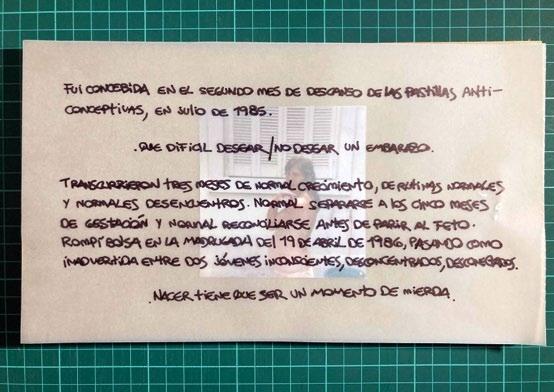 FUI CONCEBIDA EN EL SEGUNDO MES DE DESCANSO DE LAS PASTILLAS ANTI-
CONCEPTIVAS, EN JULIO DE 1985.
.QUE DIFICIL DESEAR/NO DESEAR UN EMBARAZO.
TRANSCURRIERON TRES MESES DE NORMAL CRECIMIENTO, DE RUTINAS NORMALES
Y NORMALES DESENCUENTROS. NORMAL SEPARARSE A LOS CINCO MESES
DE GESTACIÓN Y NORMAL RECONCILIARSE ANTES DE PARIR AL FETO.
ROMPÍ BOLSA EN LA MADRUGADA DEL 19 DE ABRIL DE 1986, PASANDO COMO
INADVERTIDA ENTRE DOS JÓVENES INCONSCIENTES, DESCONCENTRADOS, DESCONECTADOS.
.NACER TIENE QUE SER UN MOMENTO DE MIERDA.